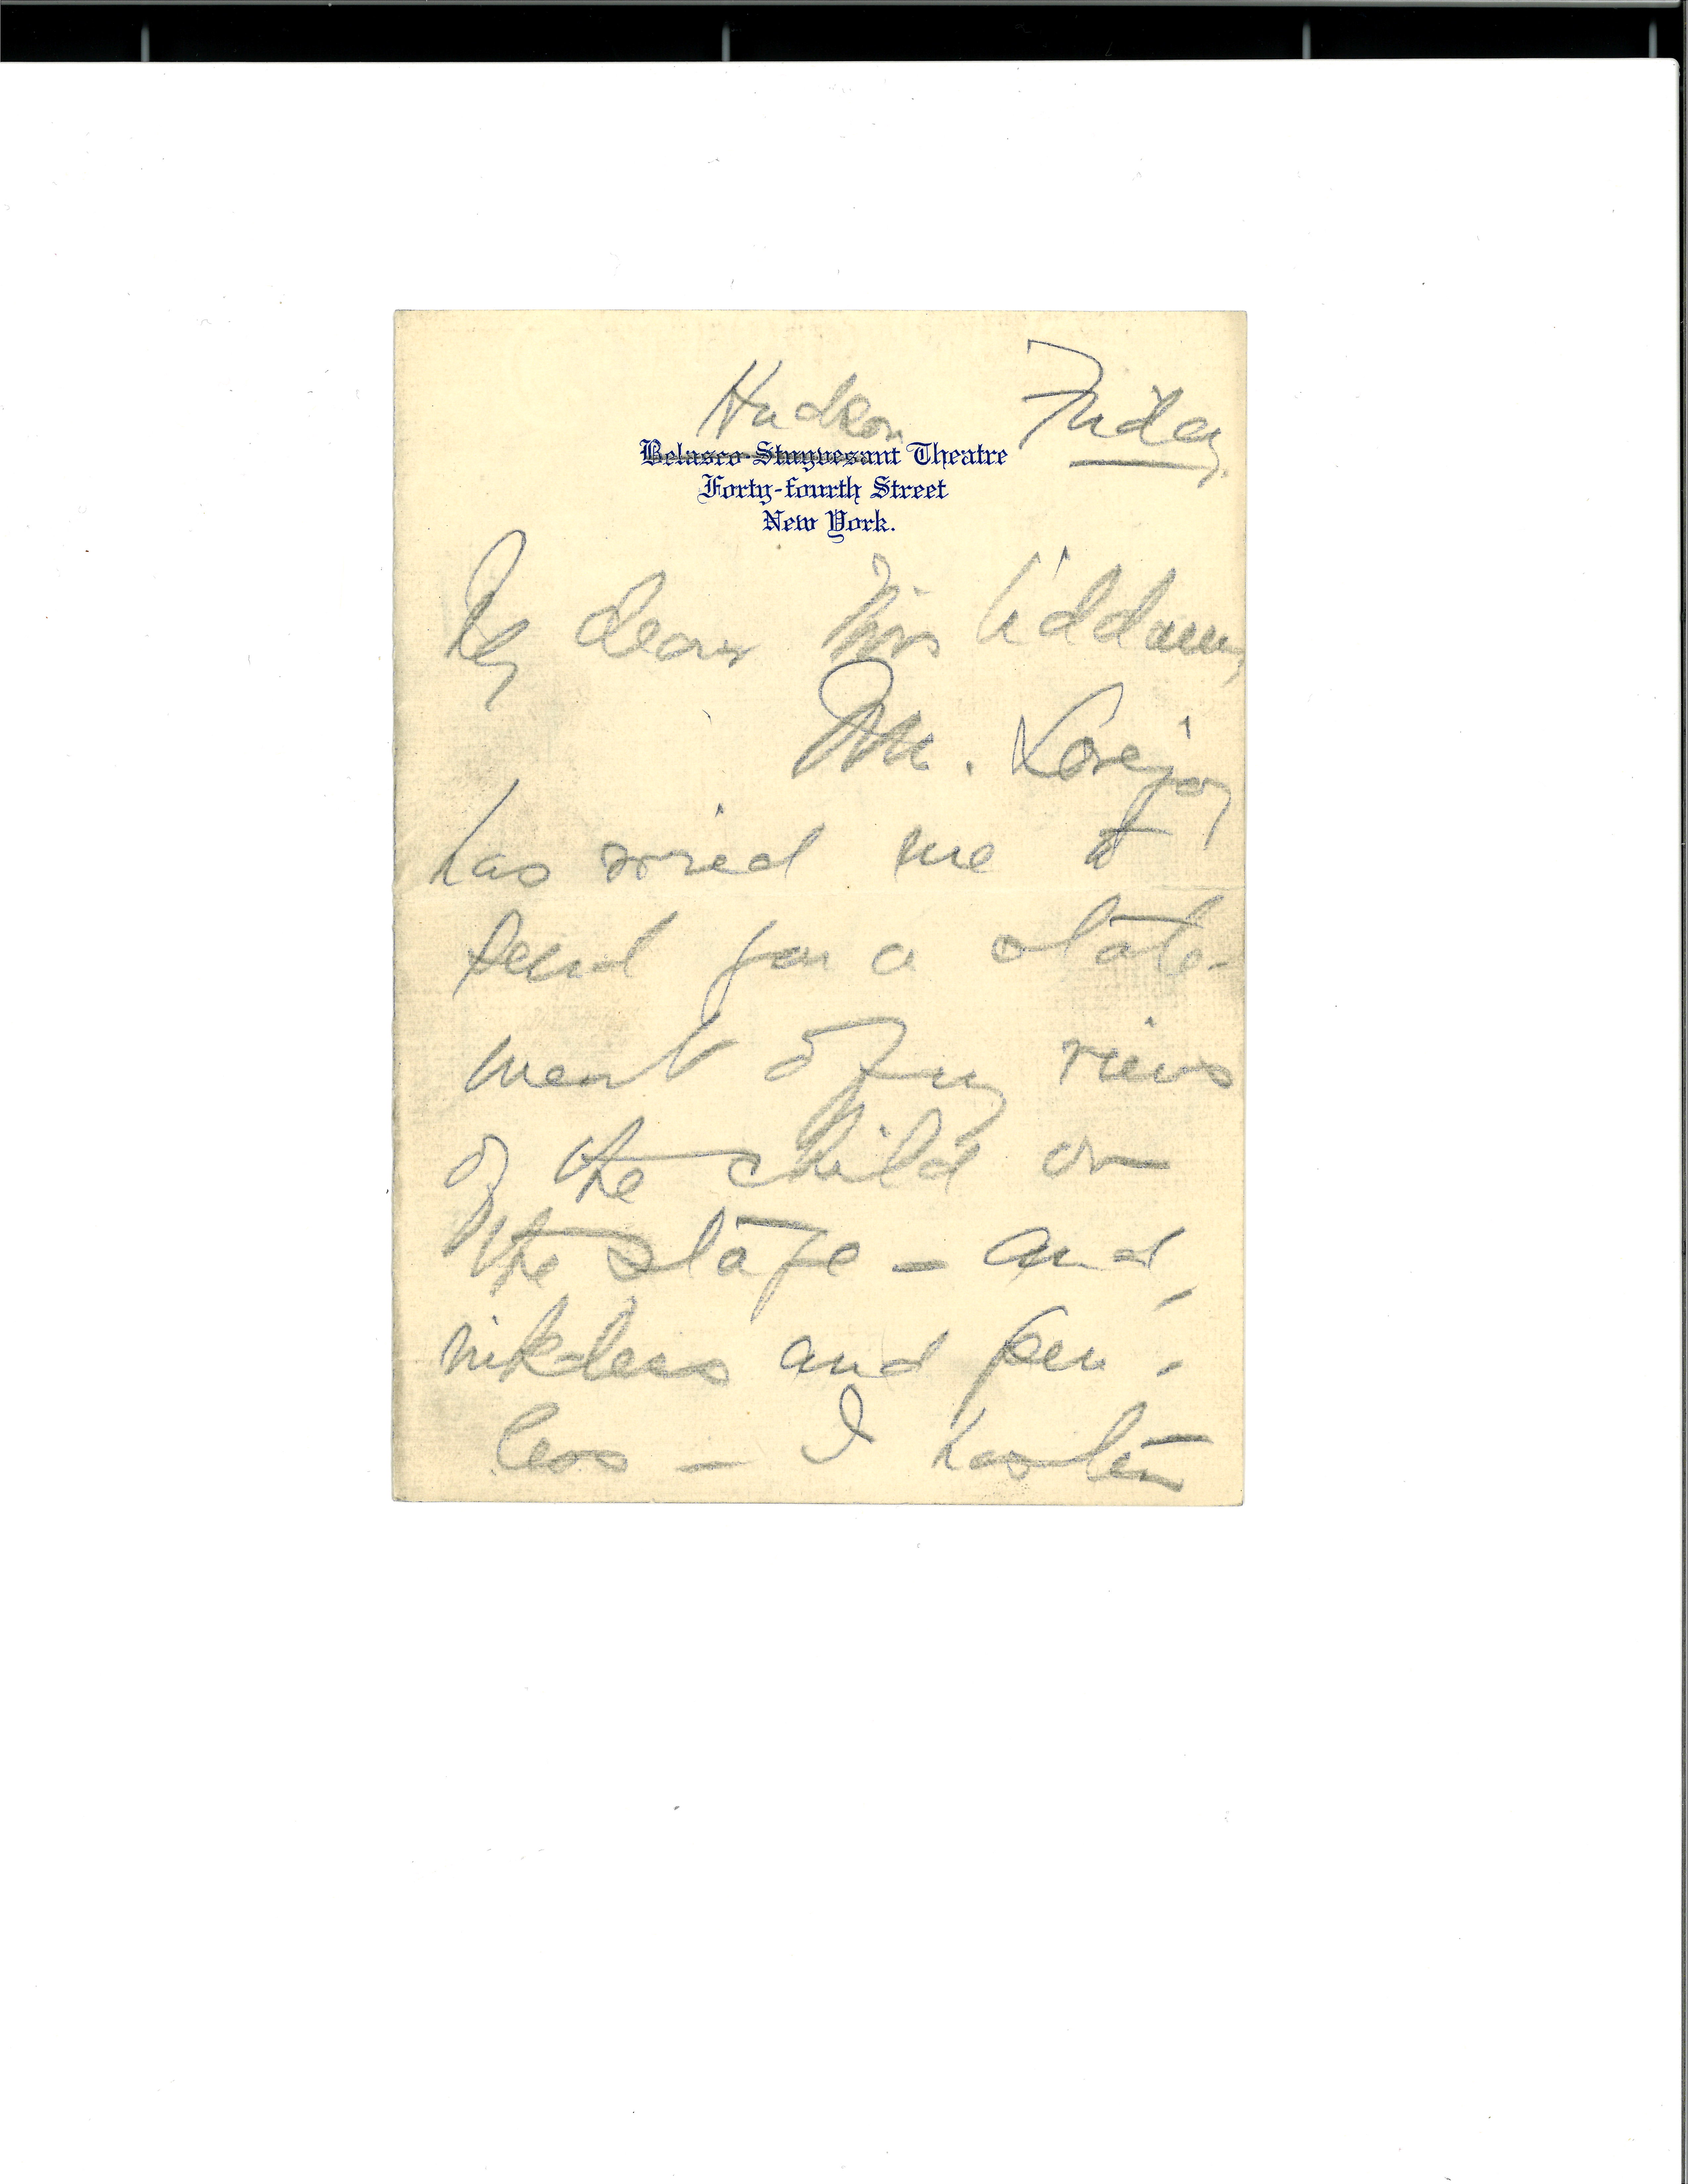 Hudson Friday
Belasco-Stuyvesant Theatre
Forty-fourth Street
New York.
My dear Miss Addams,
Mr. Lovejoy
has wired me to
send you a state-
ment of my views
of the child on
the stage – and,
inkless and pen-
less – I hasten